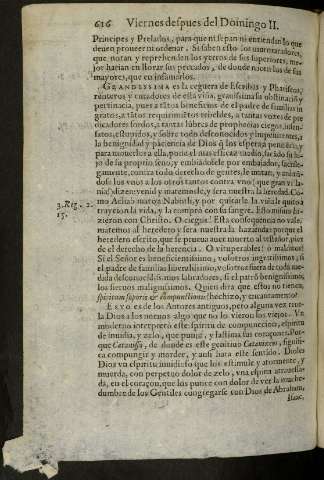 616 Viernes despues del Domingo II.
Principes y Prelados, para que ni sepan ni entiendan lo que
deuen proueer ni ordenar. Si saben esto los murmuradores,
que notan y reprehenden los yerros de sus superiores, me-
jor harian en llorar sus pecados, de donde nacen los de sus
mayores, que en infamarlos.
GRANDISSIMA es la ceguera de Escribas y Phariseos,
renteros y curadores de esta viña, grandissima su obstinació y
pertinacia, pues a tãtos beneficios de el padre de familias in
gratos, a tãtos requirimiẽtos rebeldes, a tantas vozes de pre
dicadores sordos, a tantas lũbres de prophecias ciegos, insen-
satos, estupidos, y sobre todo desconocidos y impenitentes, a
la benignidad y paciencia de Dios q̃ los espera a penitẽcia, y
para mouerlos a ella, pone el mas eficaz medio, q̃ es de su hi-
jo de su proprio seno, y embiãdosele por embaxador,
contra todo derecho de gentes, le matan, y animã-
dose los vnos a los otros tantos contra vno (que gran vi-
) dizen venid y matemosle, y sera nuestra la heredad. Co-
mo Achab mato a Naboth, y por quitarle la viña le quitó a
trayciõ la vida, y la compró con su sangre. Esso mismo hi-
zieron con Christo. O ciegos! Esta consequencia no vale,
matemos al heredero y sera nuestra la hazienda: porque el
heredero escrito, que se prueua auer muerto al testador, pier
de el derecho de la herencia. O vituperables! ò malditos!
Si el Señor es beneficientissimo, vosotros ingratissimos; si
el padre de familias liberalissimo, vosotros fuera de toda me-
dida desconocidissimos labradores; si el patrõ benignissimo,
los sieruos malignissimos. Quien dira que estos no tienen,
spiritum soporis & compunctionis (hechizo, y encantamento?
ESVO es de los Autores antiguos, pero alguna vez reue-
la Dios a los nueuos algo que no lo vieron los viejos. Vn
moderno interpretò este spiritu de compunccion, espiritu
de inuidia, y zelo, que punja, y lastima sus coraçones. Por-
que Catanissi, de donde es este genitiuo Catanixeos, signifi-
ca compungir y morder, y aun hara este sentido. Dioles
Dios vn espiritu inuidioso que los estimule y atormente, y
muerda, con perpetuo dolor de zelo, vna espina atrauessa-
da, en el coraçon, que los punce con dolor de ver la muche-
dumbre de los Gentiles congregarse con Dios de Abraham,
Isaac,
3. Reg. 2.
15.